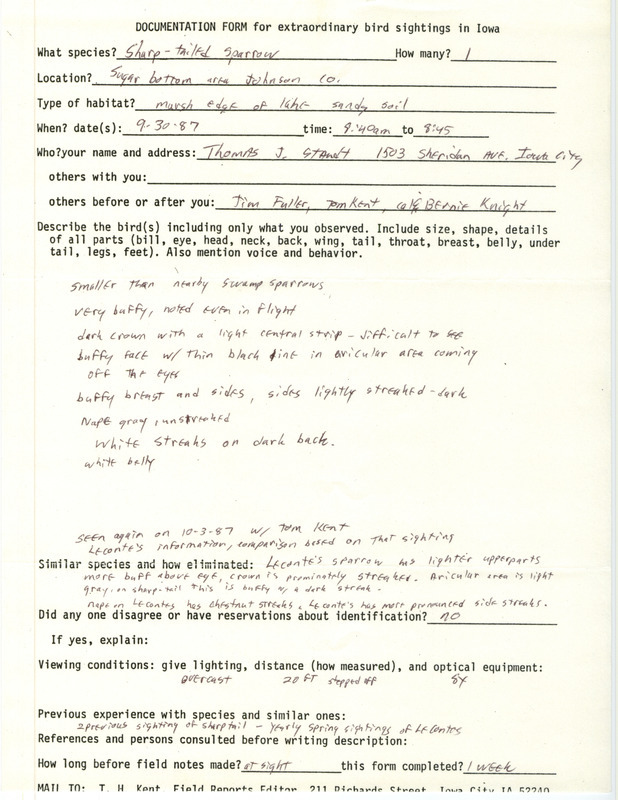 DOCUMENTATION FORM for extraordinary bird sightings in Iowa
What species? Sharp-tailed Sparrow How many? 1
Location? Sugar bottom area Johnson Co.
Type of habitat? marsh edge of lake sandy soil
When? date(s): 9-30-87 time: 8:40am to 8:45
Who?your name and address: Thomas J. Staudt 1503 Sheridan Ave. Iowa City
others with you:
others before or after you: Jim Fuller, Tom Kent, Bernie Knight
Describe the bird(s) including only what you observed. Include size, shape, details
of all parts (bill, eye, head, neck, back, wing, tail, throat, breast, belly, under
tail, legs, feet). Also mention voice and behavior.
smaller than nearby swamp sparrows
very buffy, noted even in flight
dark crown with a light central strip - difficult to see
buffy face w/ thin black line in aricular area coming
off the eyes
buffy breast and sides, sides lightly streaked-dark
Nape gray, unstreaked
White streaks on dark back.
white belly
seen again on 10-3-87 w/ Tom Kent
LeConte's information, comparison based on that sighting
Similar species and how eliminated: LeConte's sparrow has lighter upperparts
more buff above eye, crown is prominately streaked. Aricular area is light
gray, on sharp-tail this is buffy w/ a dark streak.
nape on LeContes has chestnut streaks, LeConte's has most pronounced side streaks.
Did any one disagree or have reservations about identification? no
If yes, explain:
Viewing conditions: give lighting, distance (how measured), and optical equipment:
overcast 20 FT stepped off 8x
Previous experience with species and similar ones:
2 previous sighting of sharptail - yearly spring sightings of LeContes
References and persons consulted before writing description:
How long before field notes made? at sight this form completed? 1 week
MAIL TO: T. H. Kent, Field Reports Editor, 211 Richards Street, Iowa City IA 52240